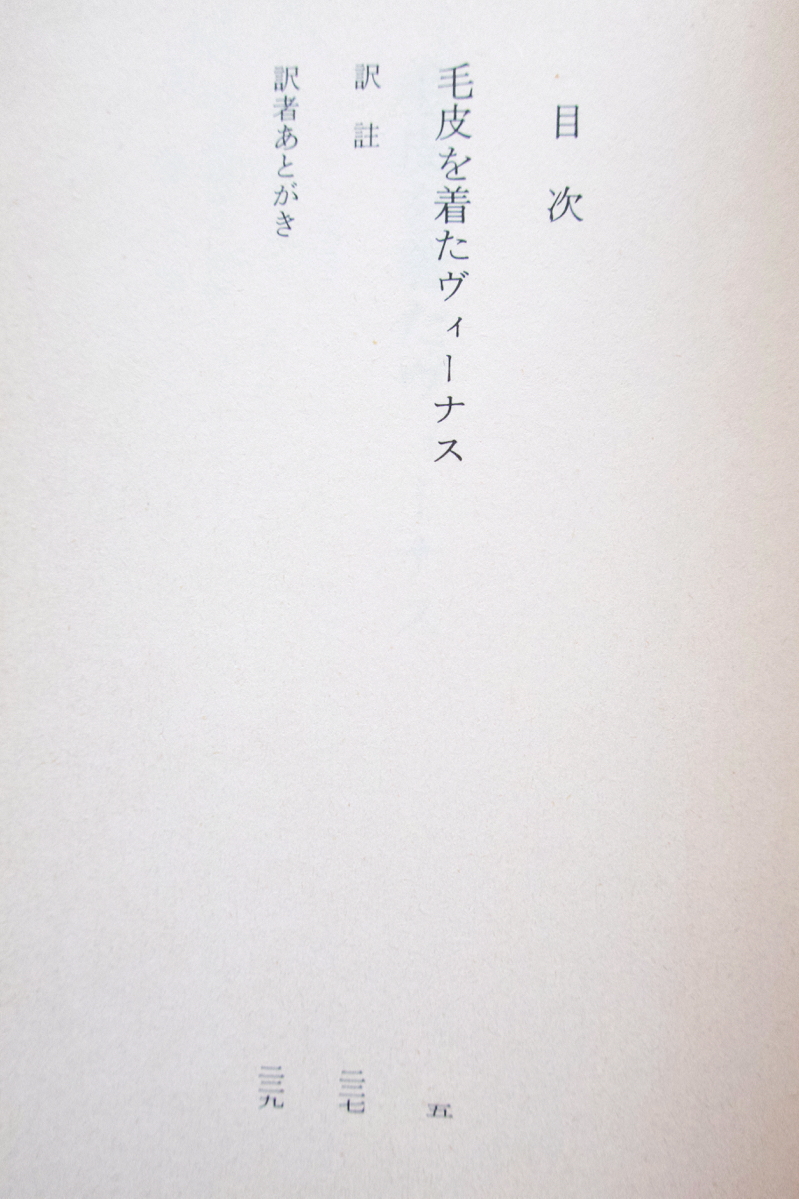 目次
毛皮を着たヴィーナス 五
訳註 二三七
訳者あとがき 二三九